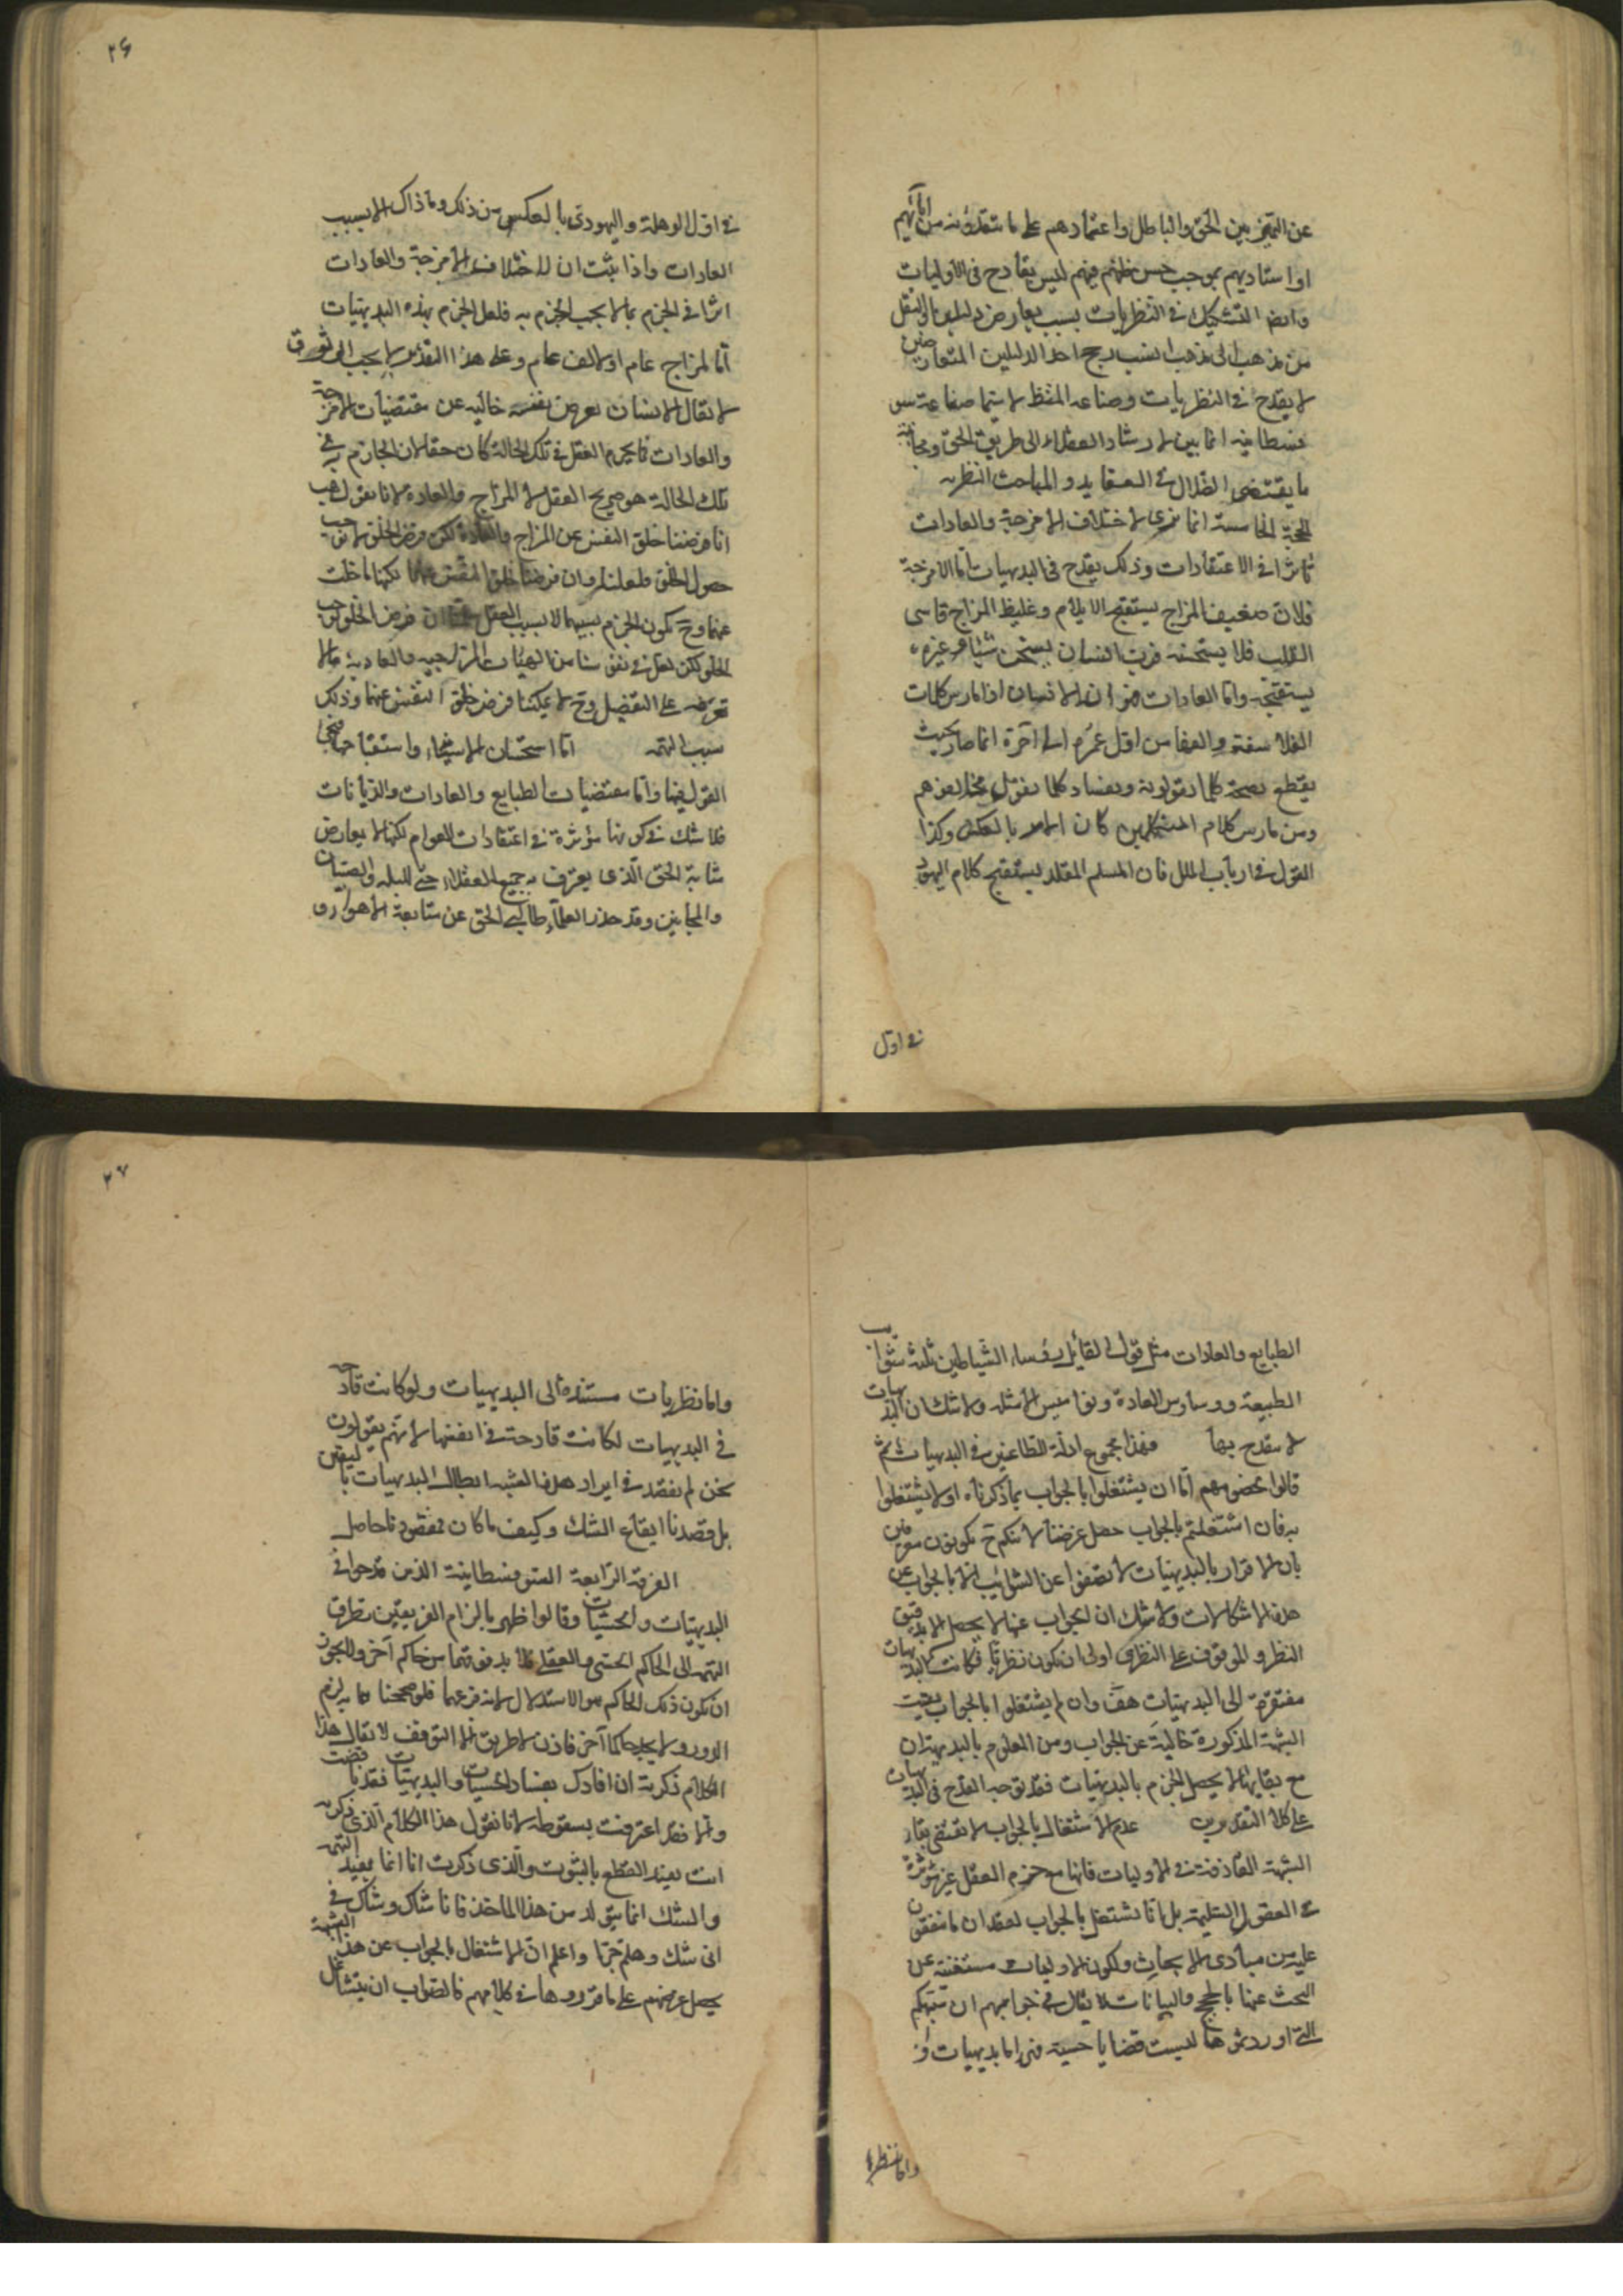 عن التميز بين الحق والباطل واعتمادهم على ما يتقلدونه من ابائهم
او استاديهم بموجب حسن ظنهم فيهم ليس بقادح في الاوليات
وايضا التشكيك في النظريات بسبب تعارض دليلين او النقل
من مذهب الى مذهب بسبب ترجح احد الدليلين المتعارضين
لا يقدح في النظريات وصناعة المنطق لا سيما صناعة سو
فسطائية انما يبين لارشاد العقلاء الى طريق الحق ومجانبة
ما يقتضى الضلال فى العقايد والمباحث النظرية
الحجة الخامسة انا نرى لاختلاف الامزجة والعادات
تاثيرا في الاعتقادات وذلك يقدح في البديهيات اما الامزجة
فلان ضعيف المزاج يستقبح الايلام وغليظ المزاج قاسى
القلب فلا يستقبحه فرب انسان يستحسن شيئا وغيره
يستقبحه واما العادات فهو ان الانسان اذا مارس كلمات
الفلاسفة والفها من اول عمره الى آخره انما صار بحيث
يقطع بصحة كلما يقولونه وبفساد كلما يقول مخالفوهم
ومن مارس كلام المتكلمين كان الامر بالعكس وكذا
القول في ارباب الملل فان المسلم المقلد يستقبح كلام اليهود
في اول
۲۶
في اول الوهلة واليهودى بالعكس من ذلك وما ذاك الا بسبب
العادات واذا ثبت ان لاختلاف الامزجة والعادات
اثرا في الجزم بما لا يجب الجزم به فلعل الجزم بهذه البديهيات
اما لمزاج عام او لالف عام وعلى هذا التقدير لا يجب الوثوق
لا يقال الانسان يعرض نفسه خالية عن مقتضيات الامزجة
والعادات فما يجزم العقل في تلك الحالة كان حقا لان الجازم به في
تلك الحالة هو صريح العقل لا المزاج والعادة لانا نقول هب
انا فرضنا خلق النفس عن المزاج والعادة لكن فرض الخلو لا يوجب
حصول الخلو فلعلنا وان فرضنا خلو النفس عنهما لكنها ما خلت
عنهما وح يكون الجزم بسببهما لا بسبب العقل ان فرض الخلو يوجب
الخلو لكن لعل في نفوسنا من الهيئات المزاجية والعادية ما لا
نعرفه على التفصيل وح لا يمكننا فرض خلو النفس عنهما وذلك
سبب التهمة اما استحسان الاشياء واستقباحها فيجئ
القول فيها واما مقتضيات الطبايع والعادات والديانات
فلا شك في كونها مؤثرة في اعتقادات العوام لكنها لا يعارض
شابة الحق الذى يعترف به جميع العقلاء حتى البله والصبيان
والمجانين وقد حذر العلماء طالبي الحق عن متابعة الاهواء و
الطبايع والعادات مثل قول القايل رؤساء الشياطين ثلثة شوايب
الطبيعة ووساوس العادة ونواميس الامثلة ولا شك ان البديهيات
لا يقدح بها فهذا مجموع ادلة الطاعنين في البديهيات ثم
قالوا لخصومهم اما ان يشتغلوا بالجواب بما ذكرناه او لا يشتغلوا
به فان اشتغلتم بالجواب حصل غرضنا لانكم ح تكونون معترفين
بان الاقرار بالبديهيات لا تصفوا عن الشوايب الا بالجواب عن
هذه الاشكالات ولا شك ان الجواب عنها لا يحصل الا بدقيق
النظر والموقوف على النظرى اولى ان يكون نظريا فكانت البديهيات
مفتقرة الى البديهيات هف وان لم يشتغلوا بالجواب بقيت
الشبهة المذكورة خالية عن الجواب ومن المعلوم بالبديهة ان
مع بقائها لا يحصل الجزم بالبديهيات فقد توجه القدح في البديهيات
على كلا التقديرين عدم الاشتغال بالجواب لا يقتضى بقاء
الشبهة القادحة في الاوليات فانها مع جزم العقل غير مؤثرة
في العقول السليمة بل انا نشتغل بالجواب لفقدان ما نتفقون
عليه من مبادى الابحاث ولكون الاوليات مستغنية عن
البحث عنها بالحجج والبيانات لا يقال في جوابهم ان شبهكم
التى اوردتموها ليست قضايا حسية فهى اما بديهيات او
واما نظريا
۲۷
واما نظريات مستندة الى البديهيات ولو كانت قادحة
في البديهيات لكانت قادحة في انفسها لانهم يقولون
نحن لم نقصد في ايراد هذه الشبه ابطال البديهيات باليقين
بل قصدنا ايقاع الشك وكيف ما كان فمقصودنا حاصل
الفرقة الرابعة السوفسطائية الذين قدحوا في
البديهيات والحسيات وقالوا ظهر بالزام الفريقين تطرق
التهمة الى الحاكم الحسى والعقلى فلا بد فوقهما من حاكم آخر ولا يجوز
ان يكون ذلك الحاكم هو الاستدلال لانه فرعهما فلو صححنا ما به لزم
الدور ولا يجد حاكما آخر فاذن لا طريق الا التوقف لا يقال هذا
الكلام ذكرته ان افادك بفساد الحسيات والبديهيات فقد ناقضت
والا فقد اعترفت بسقوطه لانا نقول هذا الكلام الذى ذكرته
انت يفيد القطع بالثبوت والذى ذكرت انا انما يفيد التهمة
والشك انما يتولد من هذا الماخذ فانا شاك وشاك في
انى شاك وهلم جرا واعلم ان الاشتغال بالجواب عن هذه الشبهة
يحصل غرضهم على ما قرروها في كلامهم فالصواب ان يتشاغل